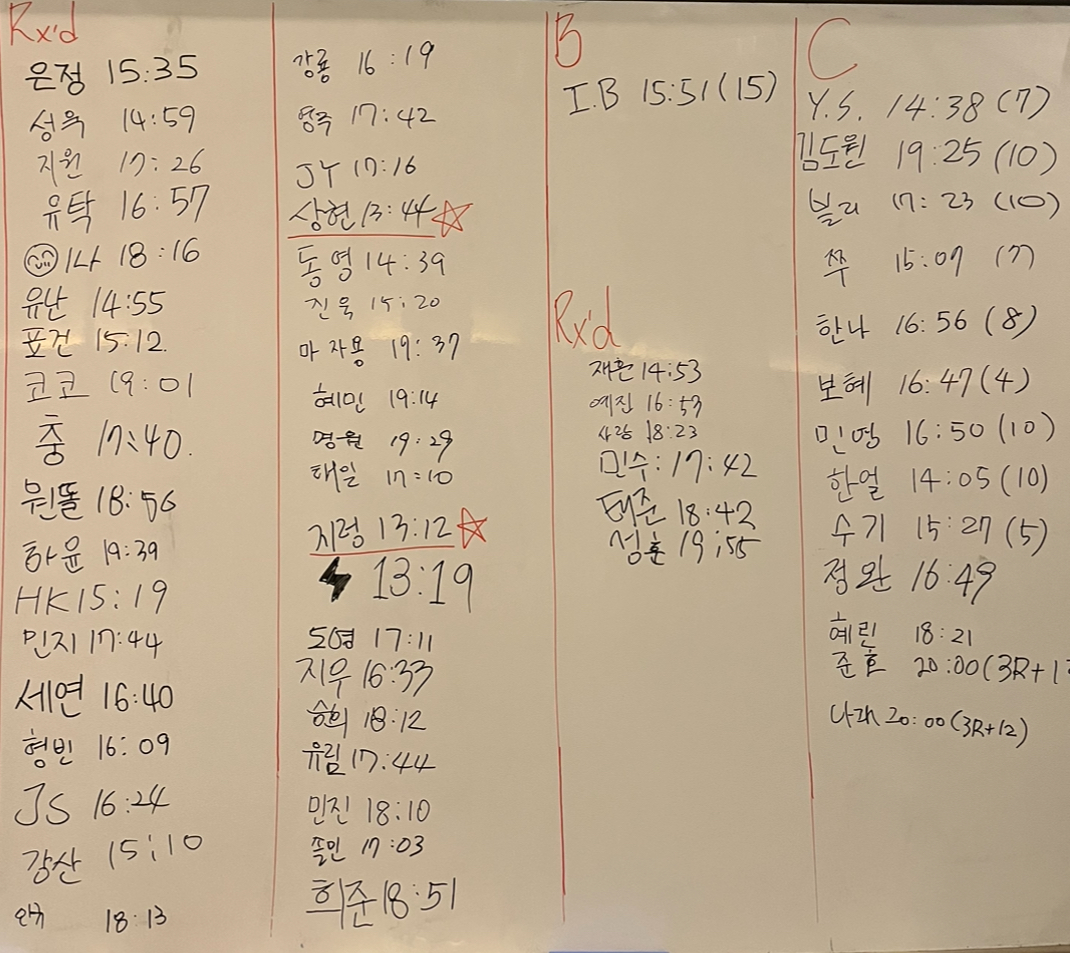 Rx'd
은정 15:35
성욱 14:59
지원 17:26
유탁 16:57
1나 18:16
유난 14:55
표건 15:12.
코코 19:01
충 17:40.
원똘 18:56
하윤 19:39
HK 15:19
민지 17:44
세연 16:40
형빈 16:09
JS 16:24
강산 15:10
18:13
강룡 16:19
영주 17:42
JY 17:16
상현 13:44
동영 14:39
진욱 15:20
마자용 19:37
혜민 19:14
명월 19:29
태일 17:10
지령 13:12
13:19
도영 17:11
지우 16:33
승희 18:12
유림 17:44
민진 18:10
17:03
희준 18:51
B
I.B 15:51 (15)
Rx'd
재환 14:53
예진 16:53
사랑 18:23
민수: 17:42
태준 18:42
성훈 19:55
C
Y.S. 14:38 (7)
김도원 19:25 (10)
빌리 17:23 (10)
쭈 15:07 (7)
한나 16:56 (8)
보혜 16:47 (4)
민영 16:50 (10)
한얼 14:05 (10)
수기 15:27 (5)
정완 16:49
혜린 18:21
준호 20:00 (3R+1
나래 20:00 (3R+12)